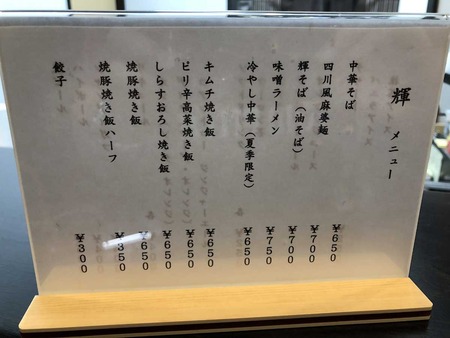 輝 メニュー
中華そば ¥650
四川風麻婆麺 ¥700
輝そば(油そば) ¥700
味噌ラーメン ¥750
冷やし中華(夏季限定) ¥650
キムチ焼き飯 ¥650
ピリ辛高菜焼き飯 ¥650
しらすおろし焼き飯 ¥650
焼豚焼き飯 ¥650
焼豚焼き飯ハーフ ¥350
餃子 ¥300